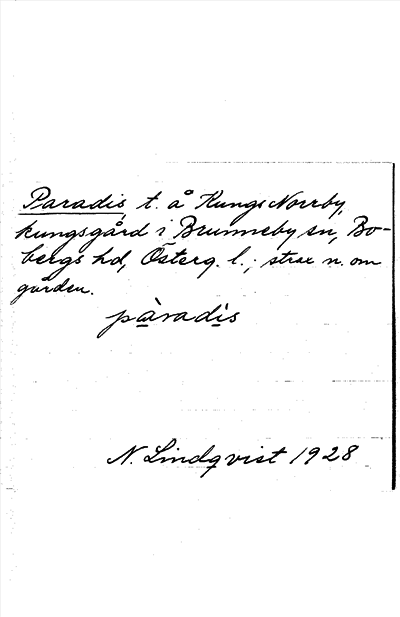 Paradis, t. å Kungs Norrby,
kungsgård i Brunneby sn, Bo-
bergs hd, Österg. l.; strax n. om
gården.
pàradìs
N. Lindqvist 1928